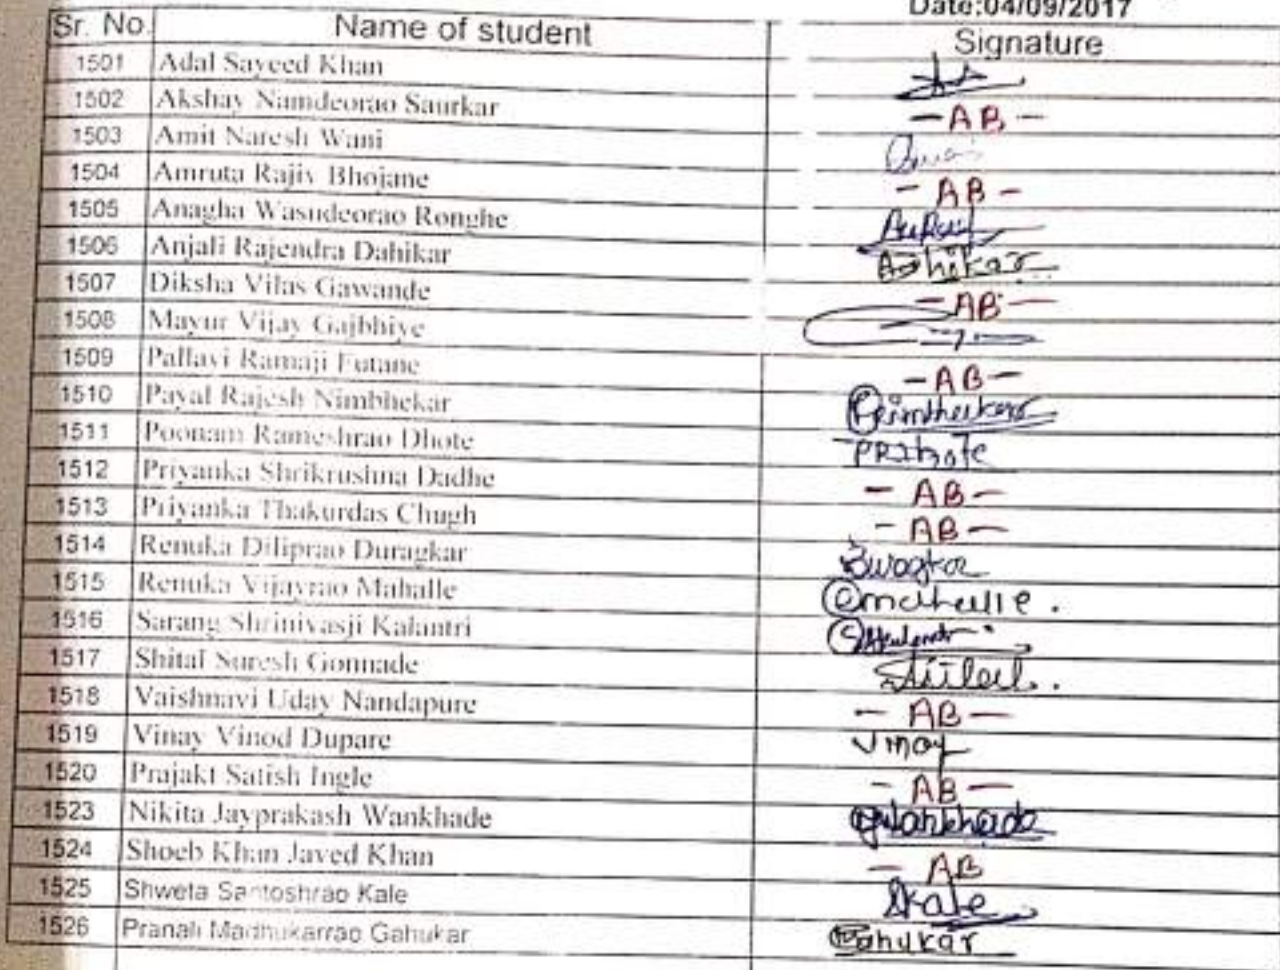 Date:04/09/2017
Sr. No. Name of student Signature
1501 Adal Sayeed Khan
1502 Akshay Namdeorao Saurkar - AB -
1503 Amit Naresh Wani
1504 Amruta Rajiv Bhojane - AB -
1505 Anagha Wasudeorao Ronghe
1506 Anjali Rajendra Dahikar
1507 Diksha Vilas Gawande - AB -
1508 Mayur Vijay Gajbhiye
1509 Pallavi Ramaji Futane - AB -
1510 Payal Rajesh Nimbhekar
1511 Poonam Rameshrao Dhote
1512 Priyanka Shrikrushna Dadhe - AB -
1513 Priyanka Thakurdas Chugh - AB -
1514 Renuka Diliprao Duragkar
1515 Renuka Vijayrao Mahalle
1516 Sarang Shrinivasji Kalantri
1517 Shital Suresh Gonnade
1518 Vaishnavi Uday Nandapure - AB -
1519 Vinay Vinod Dupare Vinay
1520 Prajakt Satish Ingle - AB -
1523 Nikita Jayprakash Wankhade
1524 Shoeb Khan Javed Khan - AB
1525 Shweta Santoshrao Kale Skale
1526 Pranali Madhukarrao Gahukar Gahukar